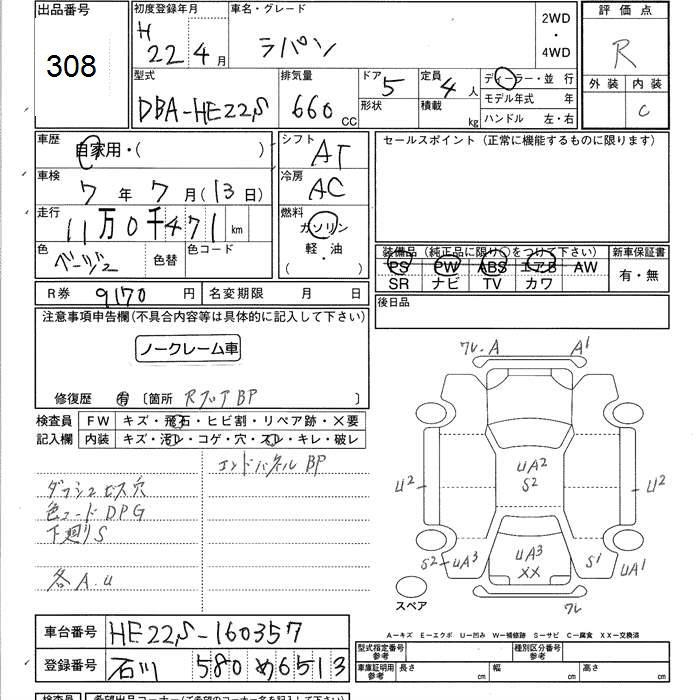 出品番号
308
初度登録年月
H
22 4月
車名・グレード
ラパン
2WD
・
4WD
評価点
R
外装 内装
C
型式
DBA-HE22S
排気量
660 CC
ドア 5
形状
定員 4 人
積載 kg
ディーラー・並行
モデル年式 年
ハンドル 左・右
車歴
自家用・( )
車検
7年 7月(13日)
走行
11万0千471 km
色
ベージュ
色替
色コード
シフト
AT
冷房
AC
燃料
ガソリン
軽・油
( ・ )
セールスポイント(正常に機能するものに限ります)
装備品(純正品に限り○をつけて下さい)
PS PW ABS エアB AW
SR ナビ TV カワ
新車保証書
有・無
R券 9170円
名変期限 月 日
後日品
注意事項申告欄(不具合内容等は具体的に記入して下さい)
ノークレーム車
修復歴 有 〔箇所 RフロアBP 〕
検査員 FW キズ・飛石・ヒビ割・リペア跡・×要
記入欄 内装 キズ・汚レ・コゲ・穴・スレ・キレ・破レ
エンドパネルBP
ダッシュビス穴
色コードDPG
下廻りS
各A.U
ワレ A A1
UA2
S2
U2 U2
UA3
XX
S2 UA3 S1 UA1
ワレ
スペア
A−キズ E−エクボ U−凹み W−補修跡 S−サビ C−腐食 XX−交換済
車台番号 HE22S-160357
登録番号 石川 580 め6513
型式指定番号
参考
種別区分番号
参考
車庫証明用
参考
長さ cm 幅 cm 高さ cm
検査員 希望出品コーナー(ご希望のコーナー名を記入して下さい)